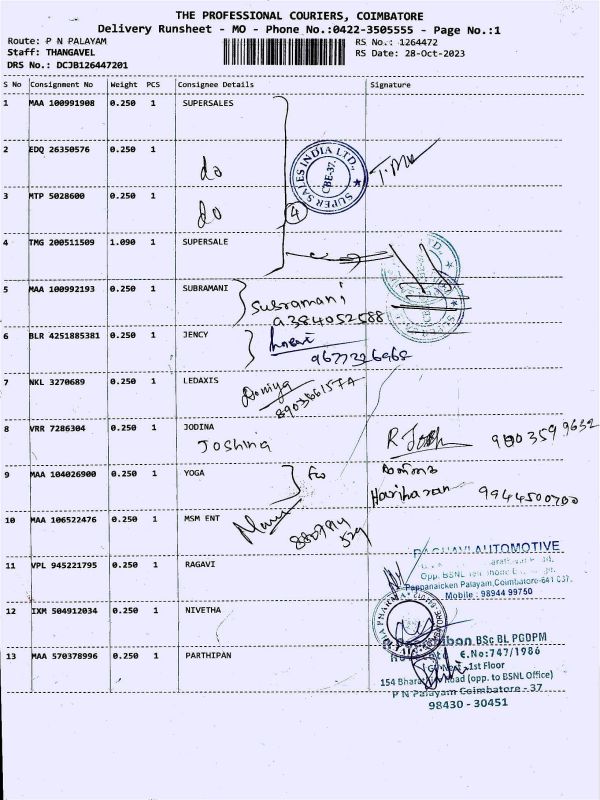 THE PROFESSIONAL COURIERS, COIMBATORE
Delivery Runsheet - MO - Phone No.:0422-3505555 - Page No.:1
Route: P N PALAYAM
Staff: THANGAVEL
DRS No.: DCJB126447201
RS No.: 1264472
RS Date: 28-Oct-2023
S No Consignment No Weight PCS Consignee Details Signature
1 MAA 100991908 0.250 1 SUPERSALES
2 EDQ 26350576 0.250 1
do
SUPER SALES INDIA LTD., CBE-37.
3 MTP 5028600 0.250 1
do
4
4 TMG 200511509 1.090 1 SUPERSALE
5 MAA 100992193 0.250 1 SUBRAMANI
Subramani
9384052588
6 BLR 4251885381 0.250 1 JENCY
9677326968
7 NKL 3270689 0.250 1 LEDAXIS
8 VRR 7286304 0.250 1 JODINA
Joshina
9 MAA 104026900 0.250 1 YOGA
Hariharan 9944500700
10 MAA 106522476 0.250 1 MSM ENT
11 VPL 945221795 0.250 1 RAGAVI
AUTOMOTIVE
Opp. BSNL
Pappanaicken Palayam, Coimbatore-641 037.
Mobile : 98944 99750
12 IXM 504912034 0.250 1 NIVETHA
PHARMA
BSc BL PGDPM
E.No:747/1986
13 MAA 570378996 0.250 1 PARTHIPAN
1st Floor
154 Road (opp. to BSNL Office)
P N Palayam Coimbatore - 37
98430 - 30451